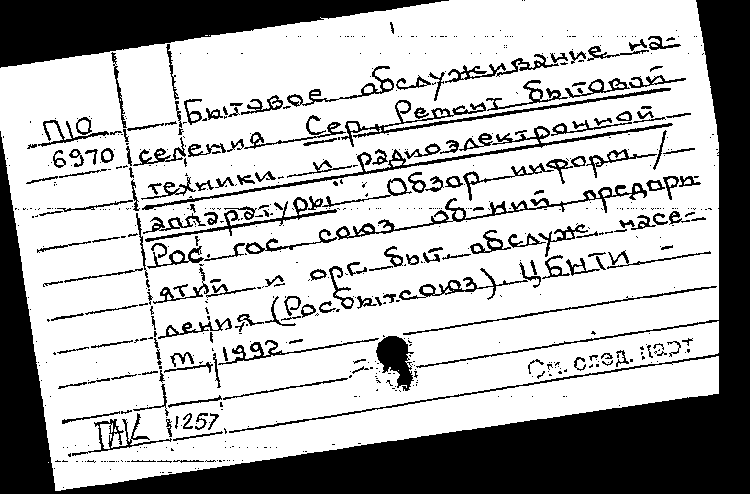 Бытовое обслуживание на-
П10
6970 селения Сер. „Ремонт бытовой
техники и радиоэлектронной
аппаратуры" : Обзор. информ. /
Рос. гос. союз об-ний, предпри-
ятий и орг. быт. обслуж. насе-
ления (Росбытсоюз). ЦБНТИ. -
М., 1992 -
См. след. карт
1257